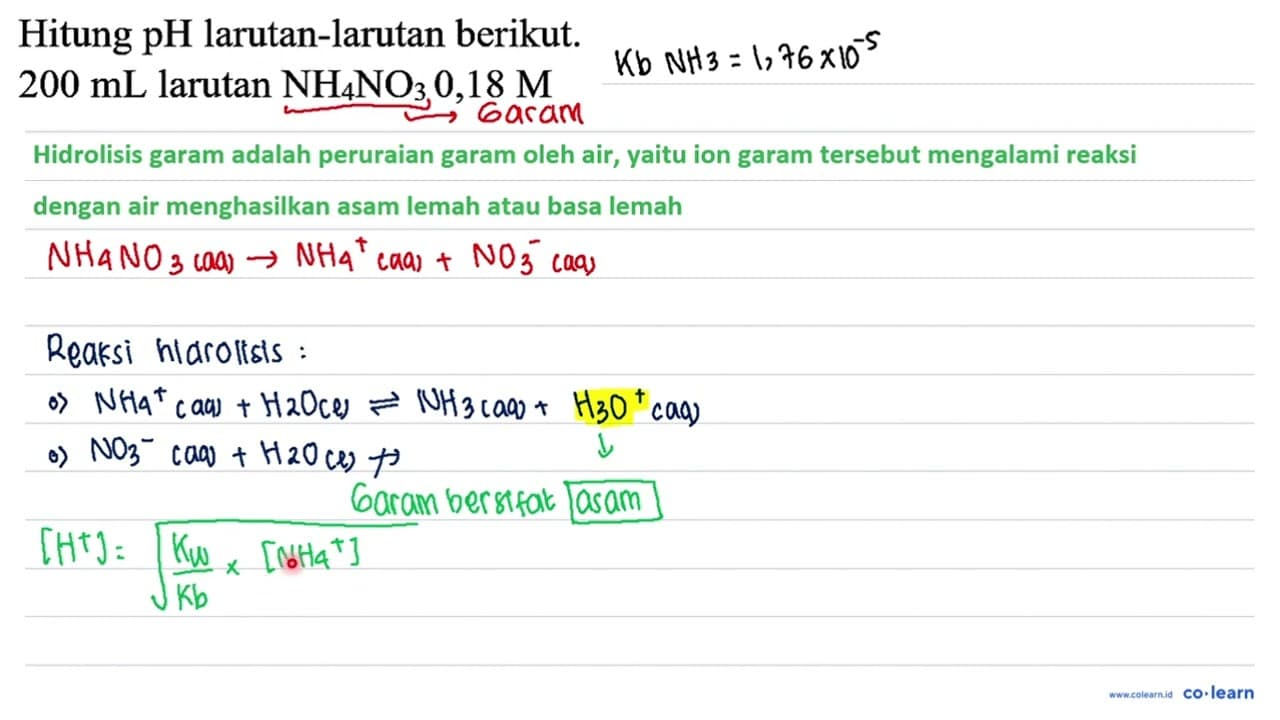 Hitung pH larutan-larutan berikut.
200 mL larutan NH4NO3 0,18 M
Kb NH3 = 1,76 x 10^-5
Garam
Hidrolisis garam adalah peruraian garam oleh air, yaitu ion garam tersebut mengalami reaksi
dengan air menghasilkan asam lemah atau basa lemah
NH4NO3 (aq) → NH4+ (aq) + NO3- (aq)
Reaksi hidrolisis :
o) NH4+ (aq) + H2O(l) ⇌ NH3 (aq) + H3O+ (aq)
o) NO3- (aq) + H2O (l) ↛
Garam bersifat asam
[H+] = √ Kw/Kb x [NH4+]
www.colearn.id co·learn